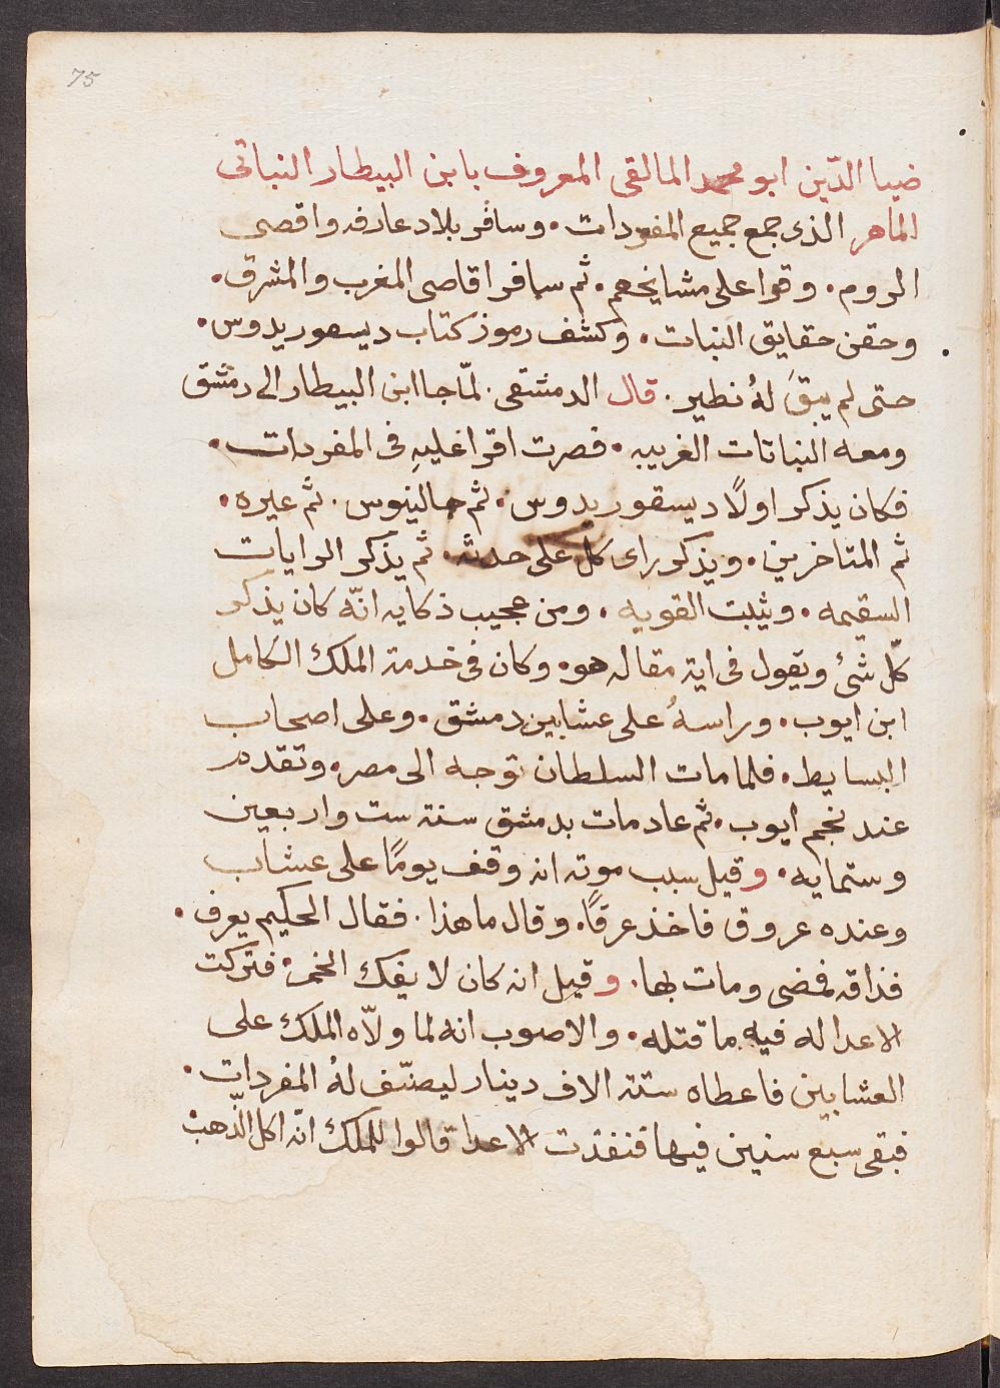 75
ضيا الدّين ابو محمد المالقى المعروف بابن البيطار النباتى
الماهر الذى جمع جميع المفردات • وسافر بلاد عارفه واقصى
الروم • وقرا على مشايخهم • ثم سافر اقاصى المغرب والمشرق •
وحقن حقايق النبات • وكشف رموز كتاب ديسعوريدوس •
حتى لم يبقَ لهُ نظير . قال الدمشقى . لمّا جا ابن البيطار الى دمشق
ومعه النباتات الغريبه • فصرت اقرا عليهِ فى المفردات •
فكان يذكر اولًا ديسقوريدوس • ثم جالينوس . ثم غيره •
ثم المتاخرين • ويذكر راى كل على حدته • ثم يذكر الرايات
السقيمه • ويثبت القويه • ومن عجيب ذكايه انّه كان يذكر
كلّ شئ ويقول فى اية مقاله هو • وكان فى خدمة الملك الكامل
ابن ايوب • وراسهُ على عشابين دمشق • وعلى اصحاب
البسايط • فلما مات السلطان توجه الى مصر • وتقدم
عند نجم ايوب • ثم عاد مات بدمشق سنة ست واربعين
وستمايه • وقيل سبب موته انه وقف يومًا على عشاب
وعنده عروق فاخذ عرقًا • وقال ما هذا . فقال الحكيم يعرف •
فذاقه فمضى ومات بها . وقيل انه كان لا يفك الخمر • فتركت
الاعدا له فيه ما قتله • والاصوب انه لما ولّاه الملك على
العشابين فاعطاه ستة الاف دينار ليصنّف لهُ المفردات •
فبقى سبع سنين فيها فنفذت الاعدا قالوا للملك انّه اكل الذّهب